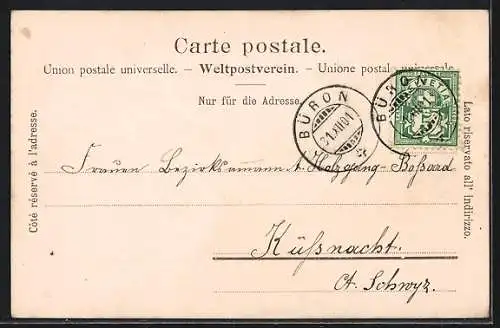 Carte postale.
Union postale universelle. — Weltpostverein. — Unione postale universale
Nur für die Adresse.
BÜRON
31.XII.01
BÜRON
HELVETIA
Côté réservé à l'adresse.
Lato riservato all' indirizzo.
Frauen Bezirksammann Holzgang-Boßard
Küßnacht.
Ct. Schwyz.